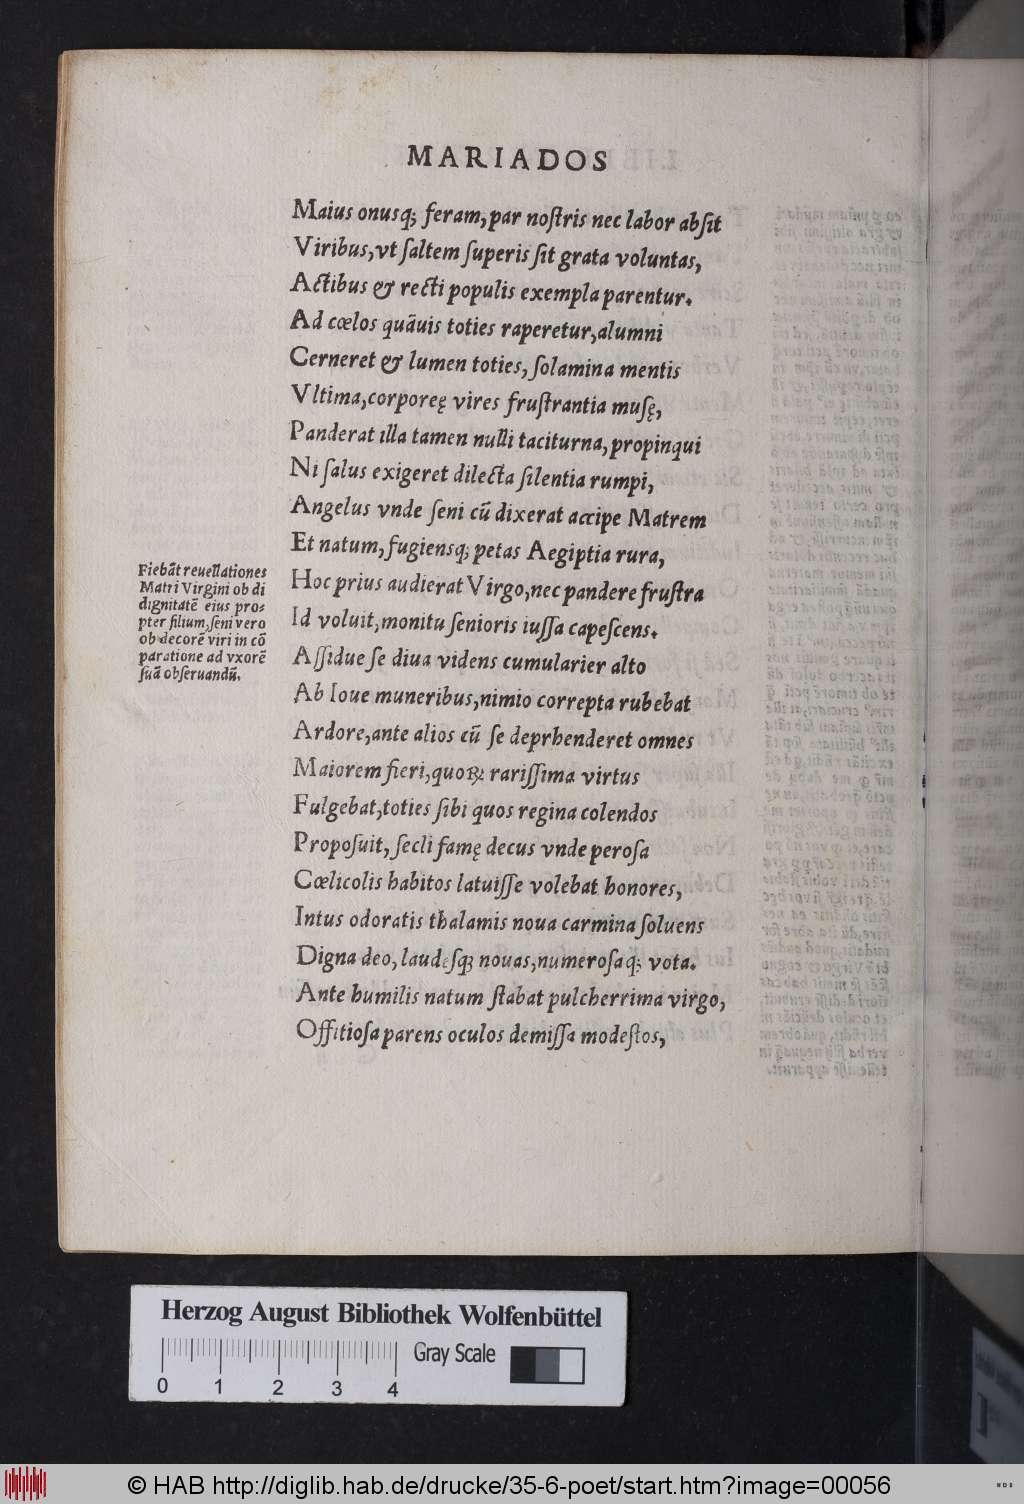 MARIADOS
Maius onusq; feram, par noſtris nec labor abſit
Viribus, vt ſaltem ſuperis ſit grata voluntas,
Actibus & recti populis exempla parentur.
Ad cœlos quāuis toties raperetur, alumni
Cerneret & lumen toties, ſolamina mentis
Vltima, corporeę vires fruſtrantia muſę,
Panderat illa tamen nulli taciturna, propinqui
Ni ſalus exigeret dilecta ſilentia rumpi,
Angelus vnde ſeni cū dixerat accipe Matrem
Et natum, fugiensq; petas Aegiptia rura,
Hoc prius audierat Virgo, nec pandere fruſtra
Id voluit, monitu ſenioris iuſſa capeſcens.
Aſſidue ſe diua videns cumularier alto
Ab Ioue muneribus, nimio correpta rubebat
Ardore, ante alios cū ſe deprhenderet omnes
Maiorem fieri, quoꝝ rariſſima virtus
Fulgebat, toties ſibi quos regina colendos
Propoſuit, ſecli famę decus vnde peroſa
Cœlicolis habitos latuiſſe volebat honores,
Intus odoratis thalamis noua carmina ſoluens
Digna deo, laudesq; nouas, numeroſaq; vota.
Ante humilis natum ſtabat pulcherrima virgo,
Offitioſa parens oculos demiſſa modeſtos,
Fiebāt reuellationes
Matri Virgini ob di
dignitatē eius pro⸗
pter filium, ſeni vero
ob decorē viri in cō
paratione ad vxorē
ſuā obſeruandū.
Herzog August Bibliothek Wolfenbüttel
Gray Scale
0 1 2 3 4
© HAB http://diglib.hab.de/drucke/35-6-poet/start.htm?image=00056